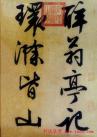 醉翁亭记
環滁皆山